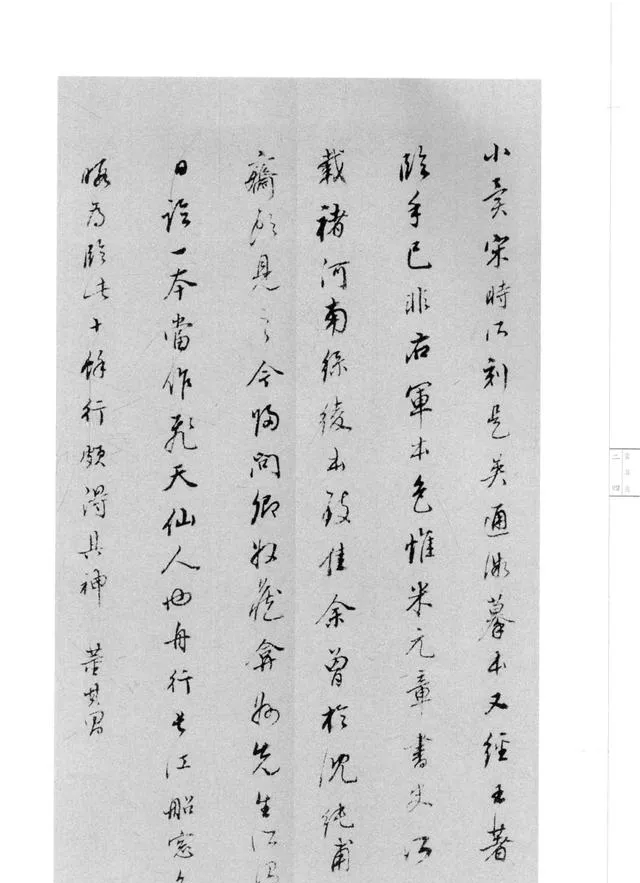 小異宋時所刻是吳通微摹本又經王著
臨手已非右軍本色惟米元章書史所
載褚河南綠綾本致佳余曾於沈純甫
齋頭見之今歸問卿收藏弇州先生所謂
日一本當作飛天仙人也舟行長江船窗
暇為臨此十餘行頗得其神 董其昌
二四